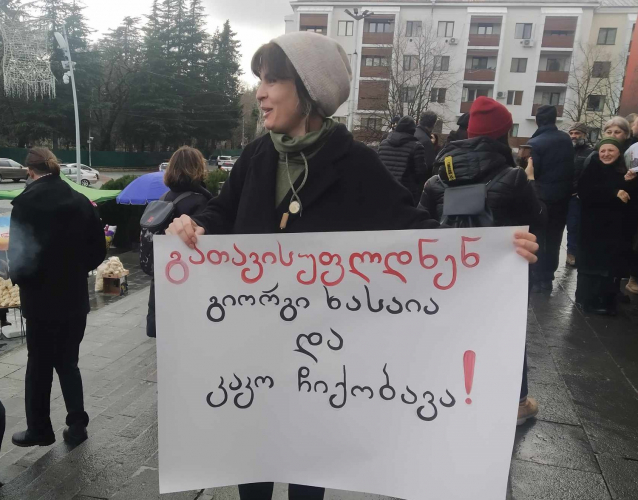 გათავისუფლდნენ
გიორგი ხასაია
და
კაკო ჩიქობავა!